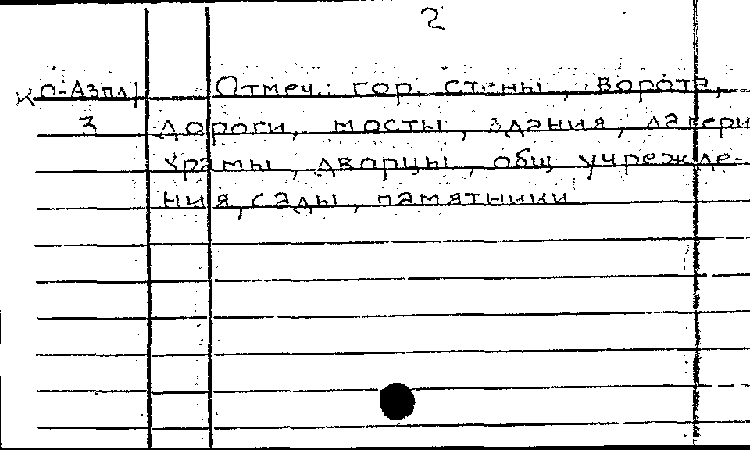 2
К П-Азпл Отмеч.: гор. стены, ворота,
3 дороги, мосты, здания, лагери
храмы, дворцы, общ учрежде-
ния, сады, памятники